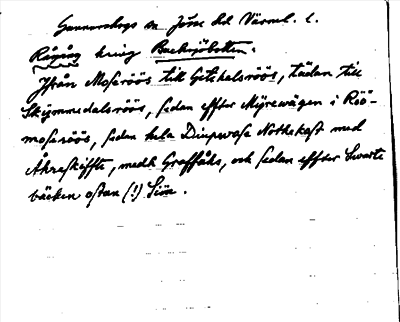 Gunnarskogs sn Jösse hd Värml. l.
Rågång kring Backsjöbotten.
Ifrån Moseröös till Getehelsröös, tädan till
Skymmedalsröös, sedan effter Myrewägen i Röö-
moseröös, sedan hela Diupwase Nothekast med
Åhreskiffte, medh Graffåås, och sedan effter Swarte
bäcken ostan (!) Siön.